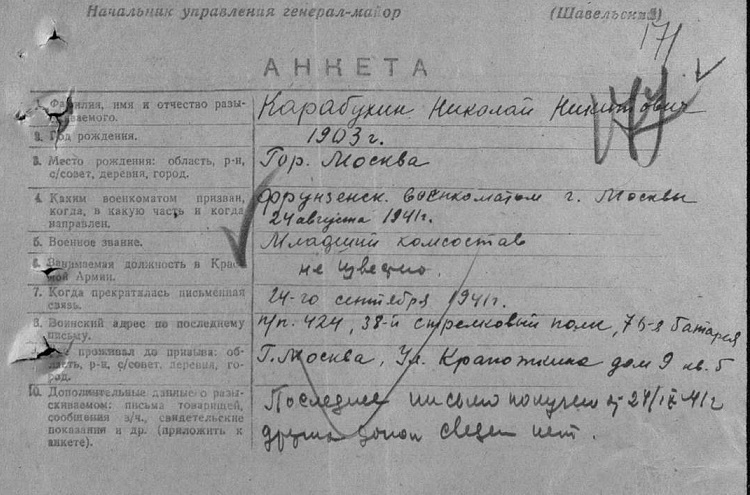 Начальник управления генерал-майор (Шавельский)
171
АНКЕТА
1. Фамилия, имя и отчество разыскиваемого. Карабухин Николай Никитович
2. Год рождения. 1903 г.
3. Место рождения: область, р-н, с/совет, деревня, город. Гор. Москва
4. Каким военкоматом призван, когда, в какую часть и когда направлен. Фрунзенск. военкоматом г. Москвы
24 августа 1941 г.
5. Военное звание. Младший комсостав
6. Занимаемая должность в Красной Армии. не извесно.
7. Когда прекратилась письменная связь. 24-го сентября 1941 г.
8. Воинский адрес по последнему письму. п/п. 424, 38-й стрелковый полк, 76-я батарея
9. Где проживал до призыва: область, р-н, с/совет, деревня, город. Г. Москва, Ул. Крапоткина дом 9 кв. 5
10. Дополнительные данные о разыскиваемом: письма товарищей, сообщения в/ч., свидетельские показания и др. (приложить к анкете). Последнее письмо получено 24/IX-41 г
сведен нет.